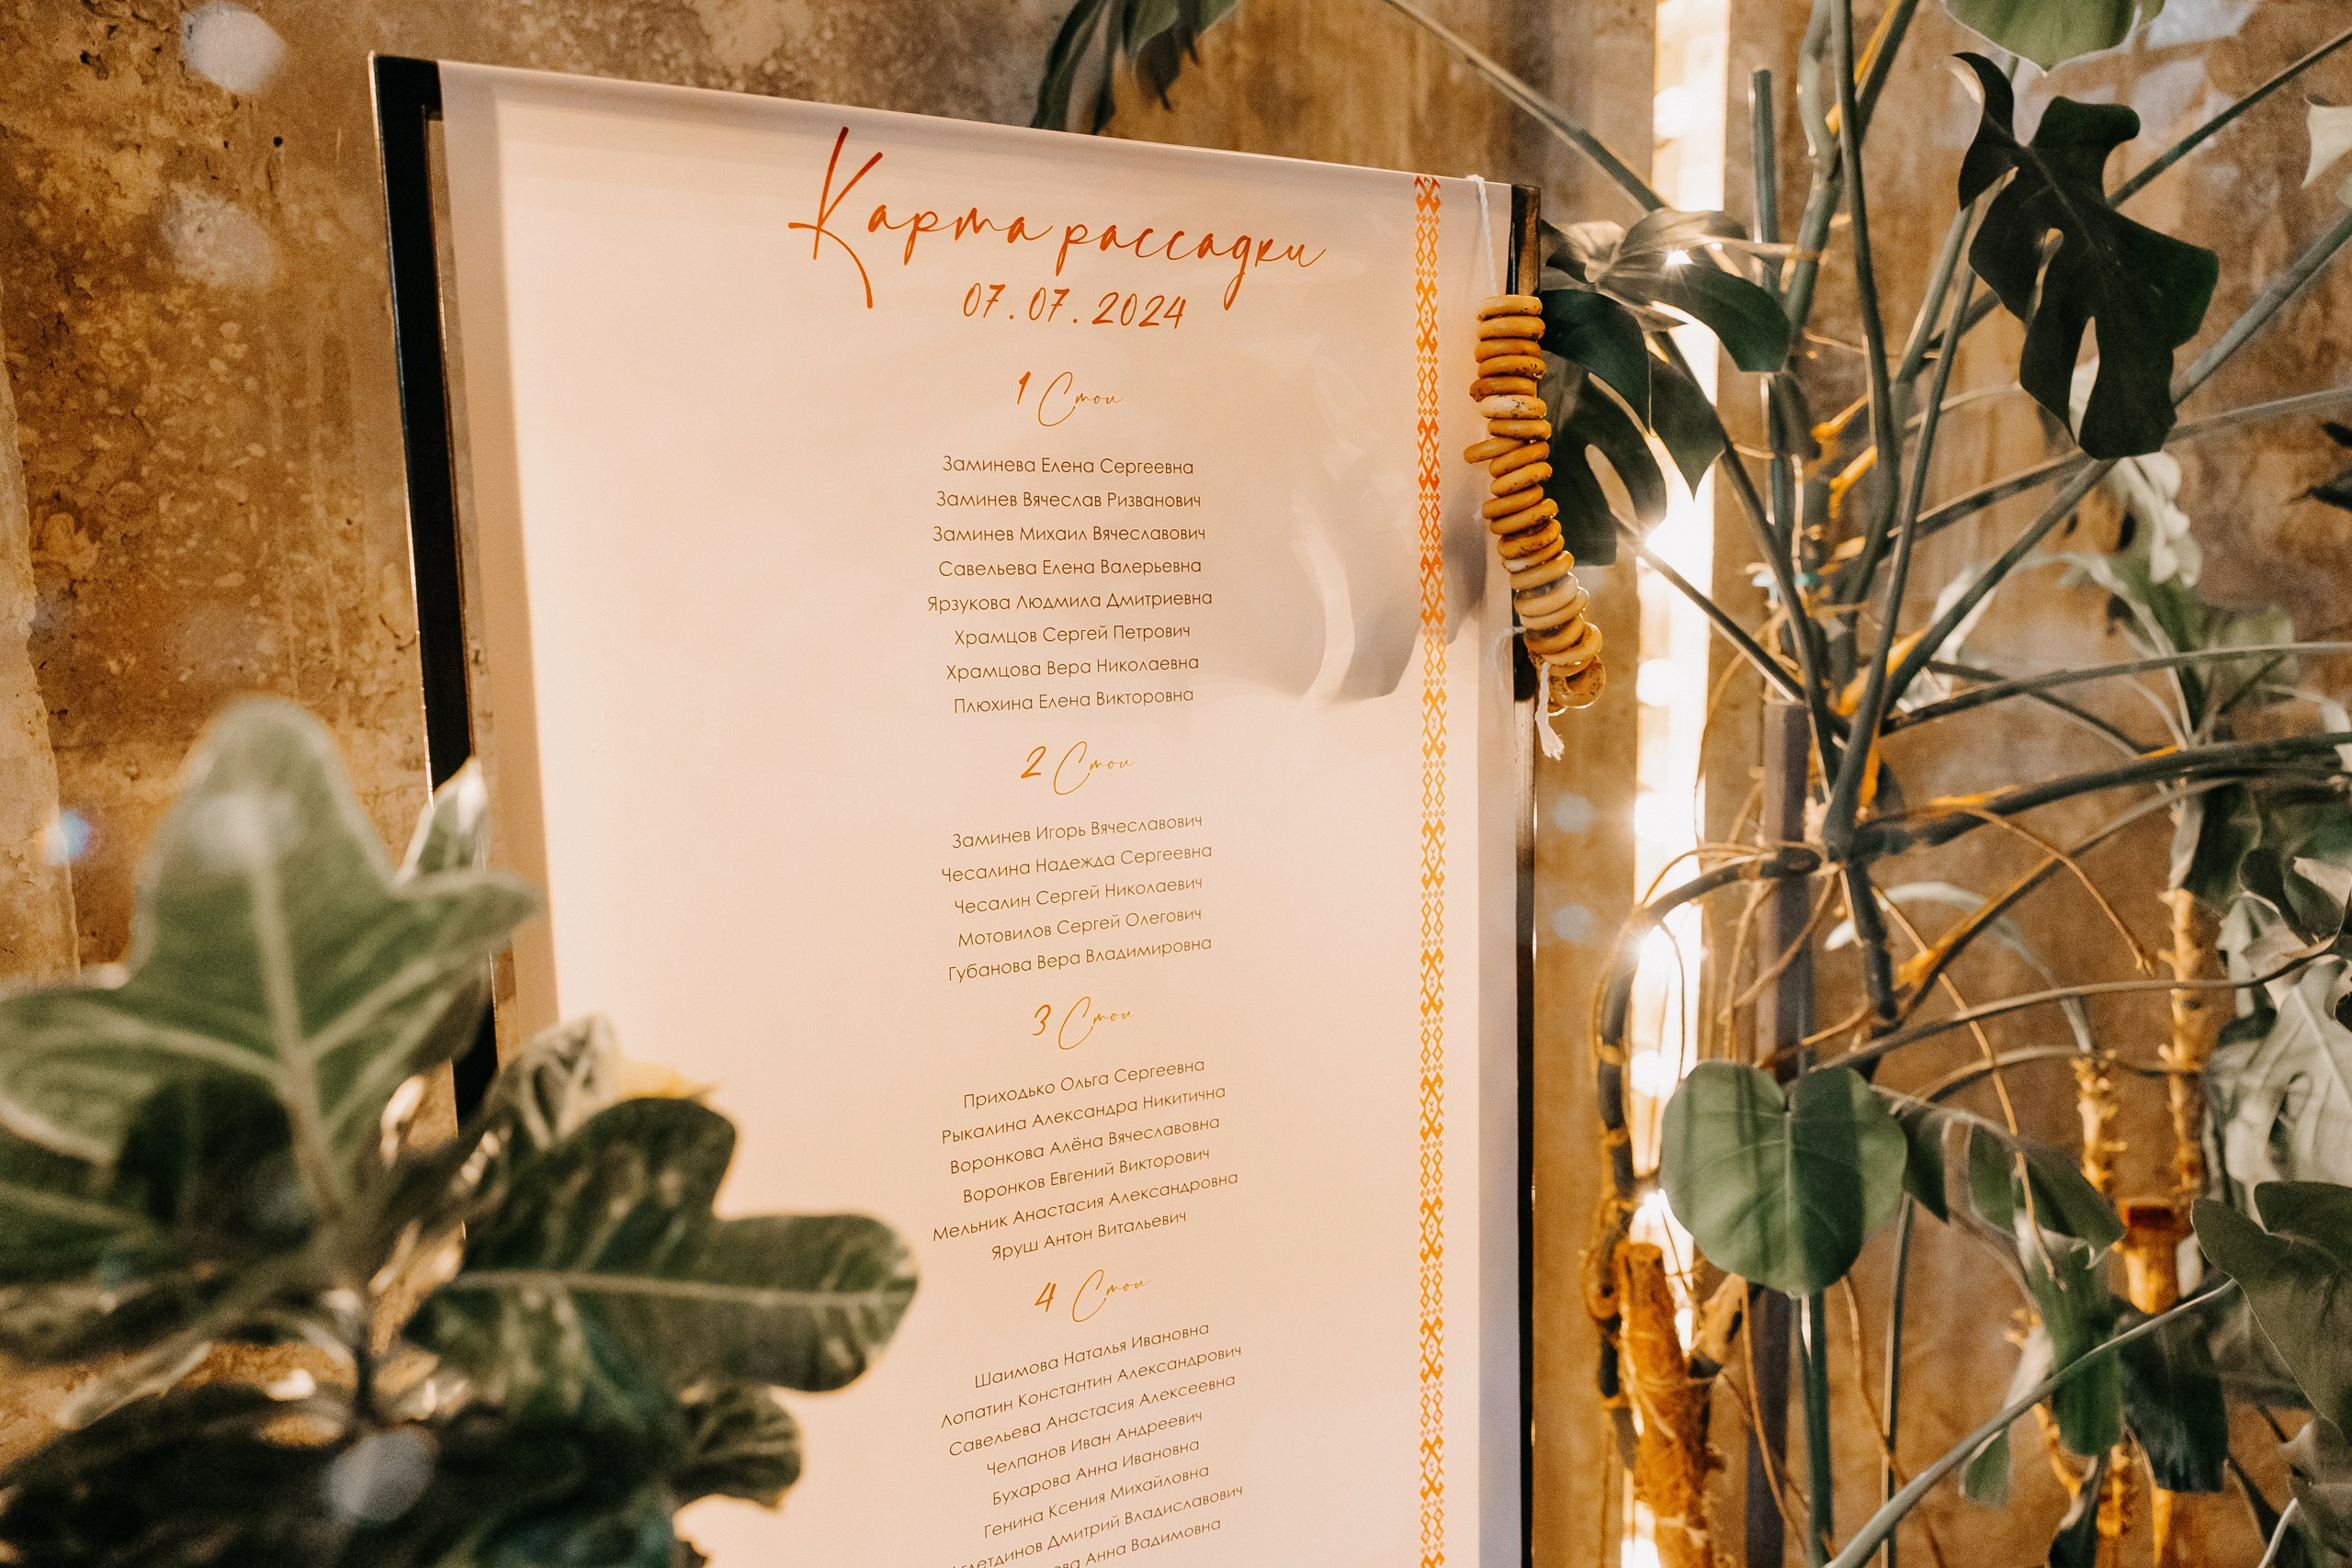 Карта рассадки
07.07.2024
1 Стол
Заминева Елена Сергеевна
Заминев Вячеслав Ризванович
Заминев Михаил Вячеславович
Савельева Елена Валерьевна
Ярзукова Людмила Дмитриевна
Храмцов Сергей Петрович
Храмцова Вера Николаевна
Плюхина Елена Викторовна
2 Стол
Заминев Игорь Вячеславович
Чесалина Надежда Сергеевна
Чесалин Сергей Николаевич
Мотовилов Сергей Олегович
Губанова Вера Владимировна
3 Стол
Приходько Ольга Сергеевна
Рыкалина Александра Никитична
Воронкова Алёна Вячеславовна
Воронков Евгений Викторович
Мельник Анастасия Александровна
Яруш Антон Витальевич
4 Стол
Шаимова Наталья Ивановна
Лопатин Константин Александрович
Савельева Анастасия Алексеевна
Челпанов Иван Андреевич
Бухарова Анна Ивановна
Генина Ксения Михайловна
Дмитрий Владиславович
Анна Вадимовна